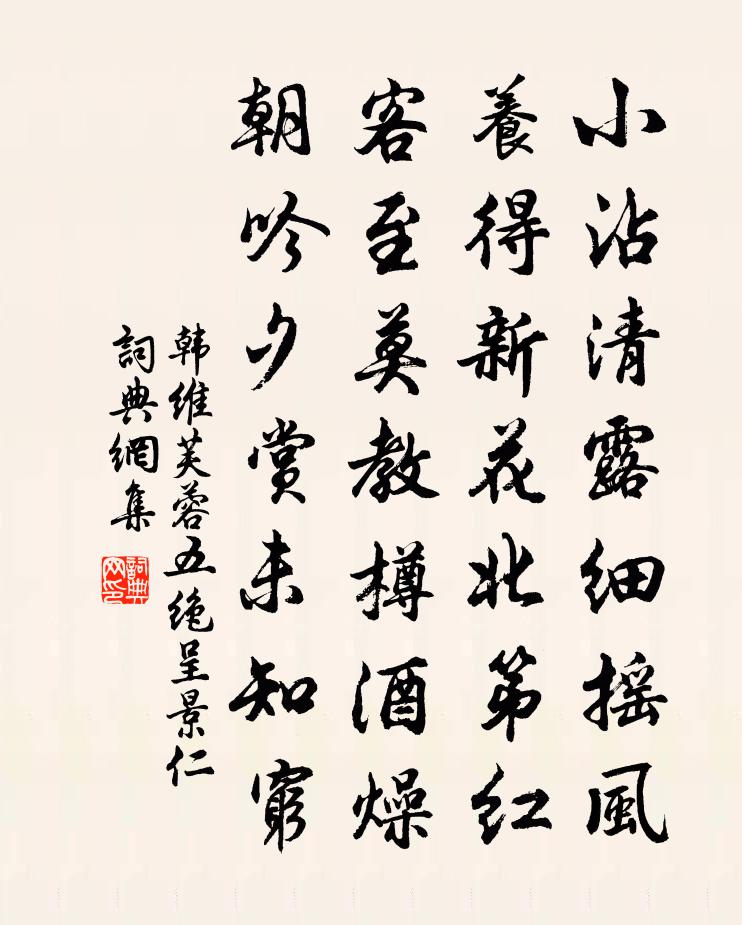 小沾清露细摇風
養得新花北第红
客至莫教樽酒燥
朝吟夕赏未知窮
韩维芙蓉五绝呈景仁
詞典網集
詞典网印